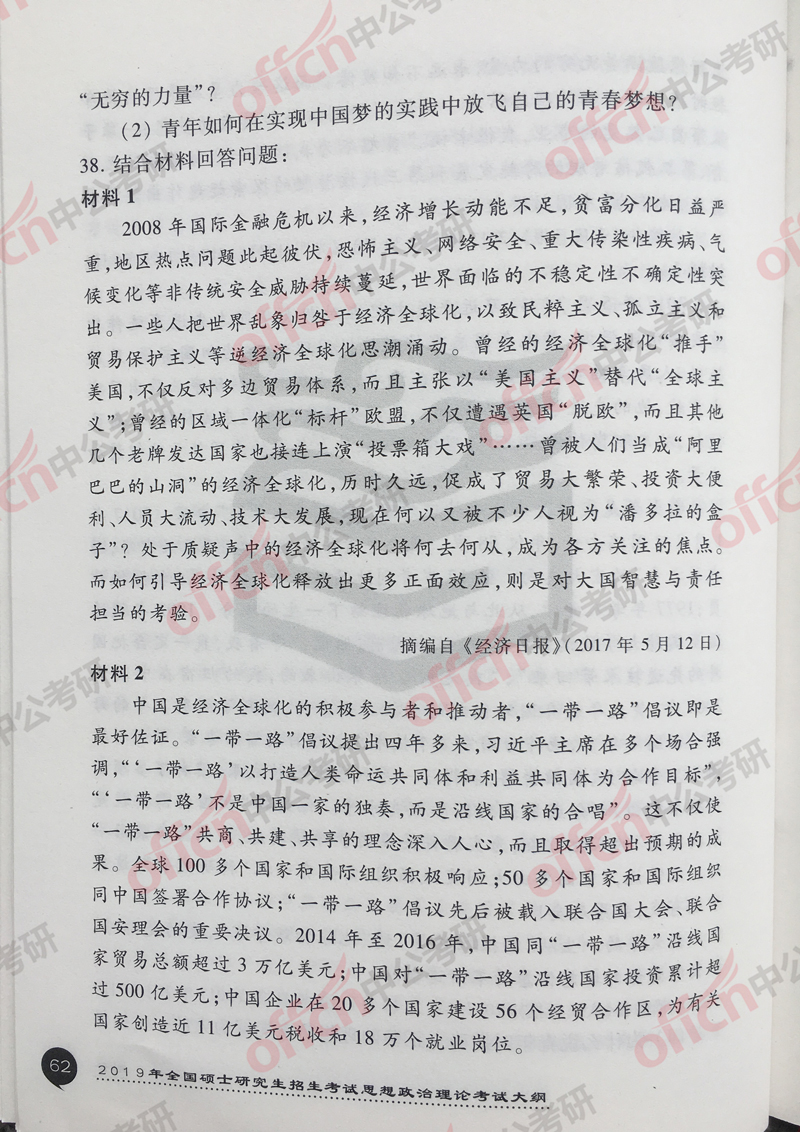 “无穷的力量”?
(2) 青年如何在实现中国梦的实践中放飞自己的青春梦想?
38. 结合材料回答问题:
材料 1
2008 年国际金融危机以来,经济增长动能不足,贫富分化日益严
重,地区热点问题此起彼伏,恐怖主义、网络安全、重大传染性疾病、气
候变化等非传统安全威胁持续蔓延,世界面临的不稳定性不确定性突
出。一些人把世界乱象归咎于经济全球化,以致民粹主义、孤立主义和
贸易保护主义等逆经济全球化思潮涌动。曾经的经济全球化“推手”
美国,不仅反对多边贸易体系,而且主张以“美国主义”替代“全球主
义”;曾经的区域一体化“标杆”欧盟,不仅遭遇英国“脱欧”,而且其他
几个老牌发达国家也接连上演“投票箱大戏”……曾被人们当成“阿里
巴巴的山洞”的经济全球化,历时久远,促成了贸易大繁荣、投资大便
利、人员大流动、技术大发展,现在何以又被不少人视为“潘多拉的盒
子”? 处于质疑声中的经济全球化将何去何从,成为各方关注的焦点。
而如何引导经济全球化释放出更多正面效应,则是对大国智慧与责任
担当的考验。
摘编自《经济日报》(2017 年 5 月 12 日)
材料 2
中国是经济全球化的积极参与者和推动者,“一带一路”倡议即是
最好佐证。“一带一路”倡议提出四年多来,习近平主席在多个场合强
调,“‘一带一路’以打造人类命运共同体和利益共同体为合作目标”,
“‘一带一路’不是中国一家的独奏,而是沿线国家的合唱”。这不仅使
“一带一路”共商、共建、共享的理念深入人心,而且取得超出预期的成
果。全球 100 多个国家和国际组织积极响应;50 多个国家和国际组织
同中国签署合作协议;“一带一路”倡议先后被载入联合国大会、联合
国安理会的重要决议。2014 年至 2016 年,中国同“一带一路”沿线国
家贸易总额超过 3 万亿美元;中国对“一带一路”沿线国家投资累计超
过 500 亿美元;中国企业在 20 多个国家建设 56 个经贸合作区,为有关
国家创造近 11 亿美元税收和 18 万个就业岗位。
62
2019年全国硕士研究生招生考试思想政治理论考试大纲
offcn中公考研